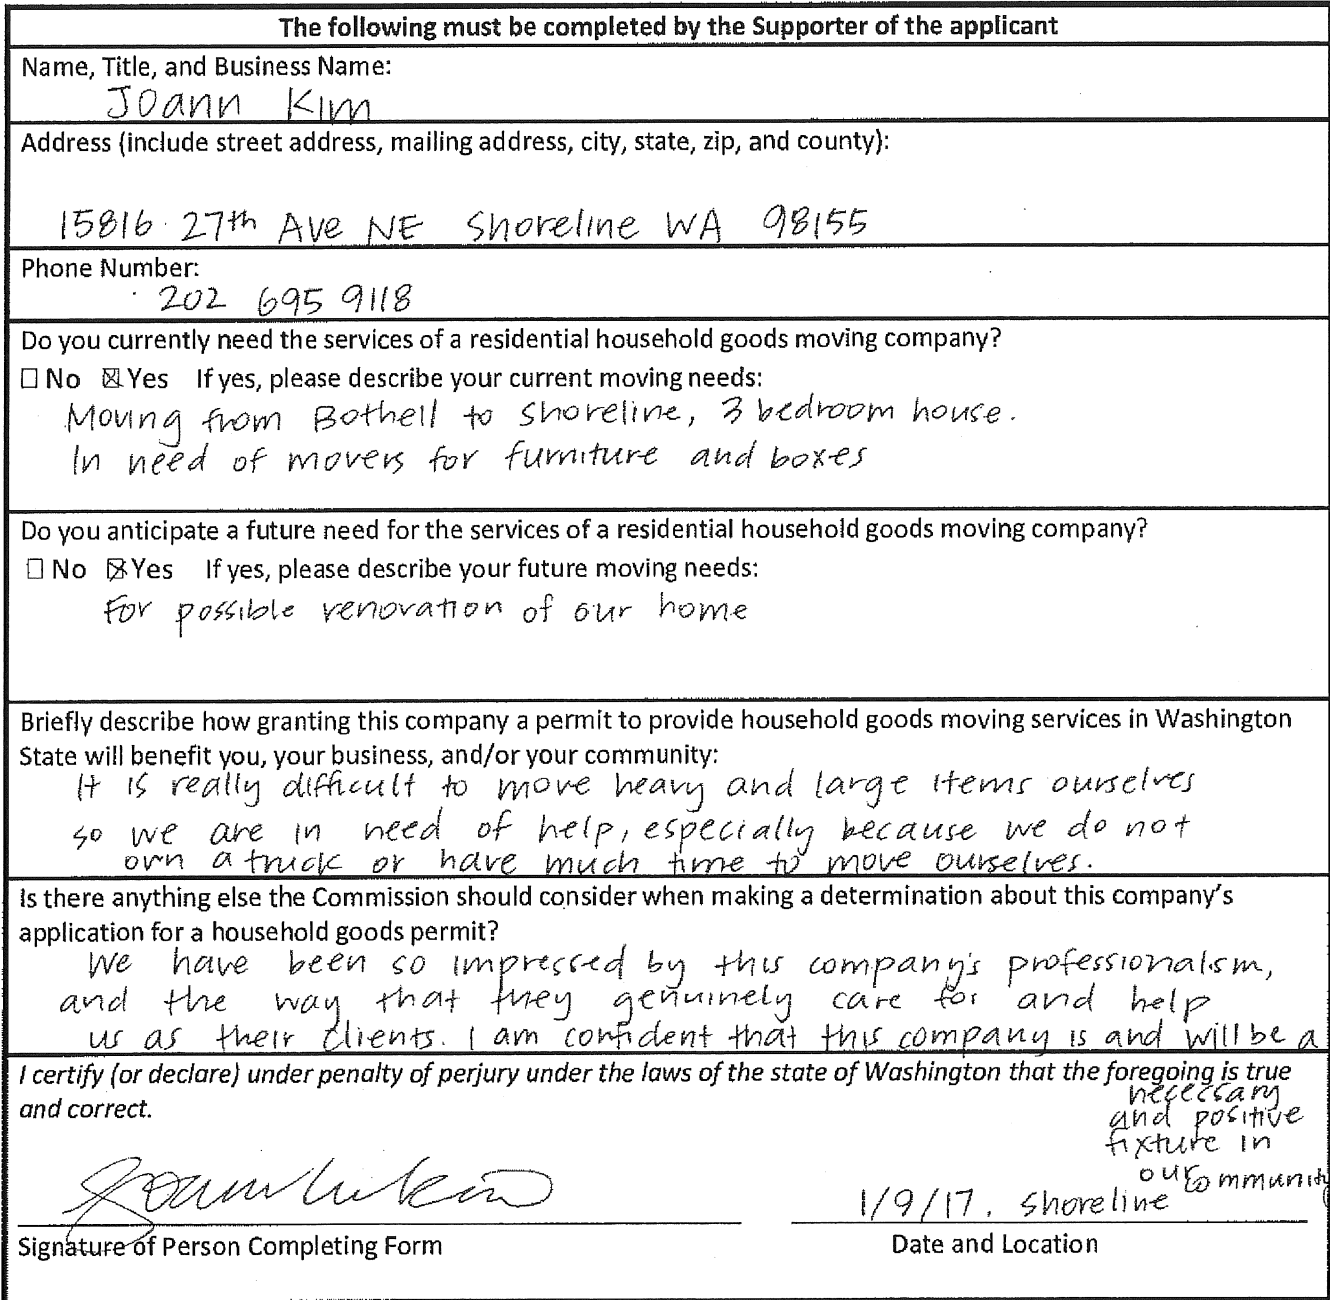 The following must be completed by the Supporter of the applicant
Name, Title, and Business Name:
Joann Kim
Address (include street address, mailing address, city, state, zip, and county):
15816 27th Ave NE Shoreline WA 98155
Phone Number:
202 695 9118
Do you currently need the services of a residential household goods moving company?
☐ No ☒ Yes If yes, please describe your current moving needs:
Moving from Bothell to Shoreline, 3 bedroom house.
In need of movers for furniture and boxes
Do you anticipate a future need for the services of a residential household goods moving company?
☐ No ☒ Yes If yes, please describe your future moving needs:
For possible renovation of our home
Briefly describe how granting this company a permit to provide household goods moving services in Washington
State will benefit you, your business, and/or your community:
It is really difficult to move heavy and large items ourselves
so we are in need of help, especially because we do not
own a truck or have much time to move ourselves.
Is there anything else the Commission should consider when making a determination about this company's
application for a household goods permit?
We have been so impressed by this company's professionalism,
and the way that they genuinely care for and help
us as their clients. I am confident that this company is and will be a
necessary
and positive
fixture in
our community
I certify (or declare) under penalty of perjury under the laws of the state of Washington that the foregoing is true
and correct.
1/9/17. Shoreline
Signature of Person Completing Form
Date and Location